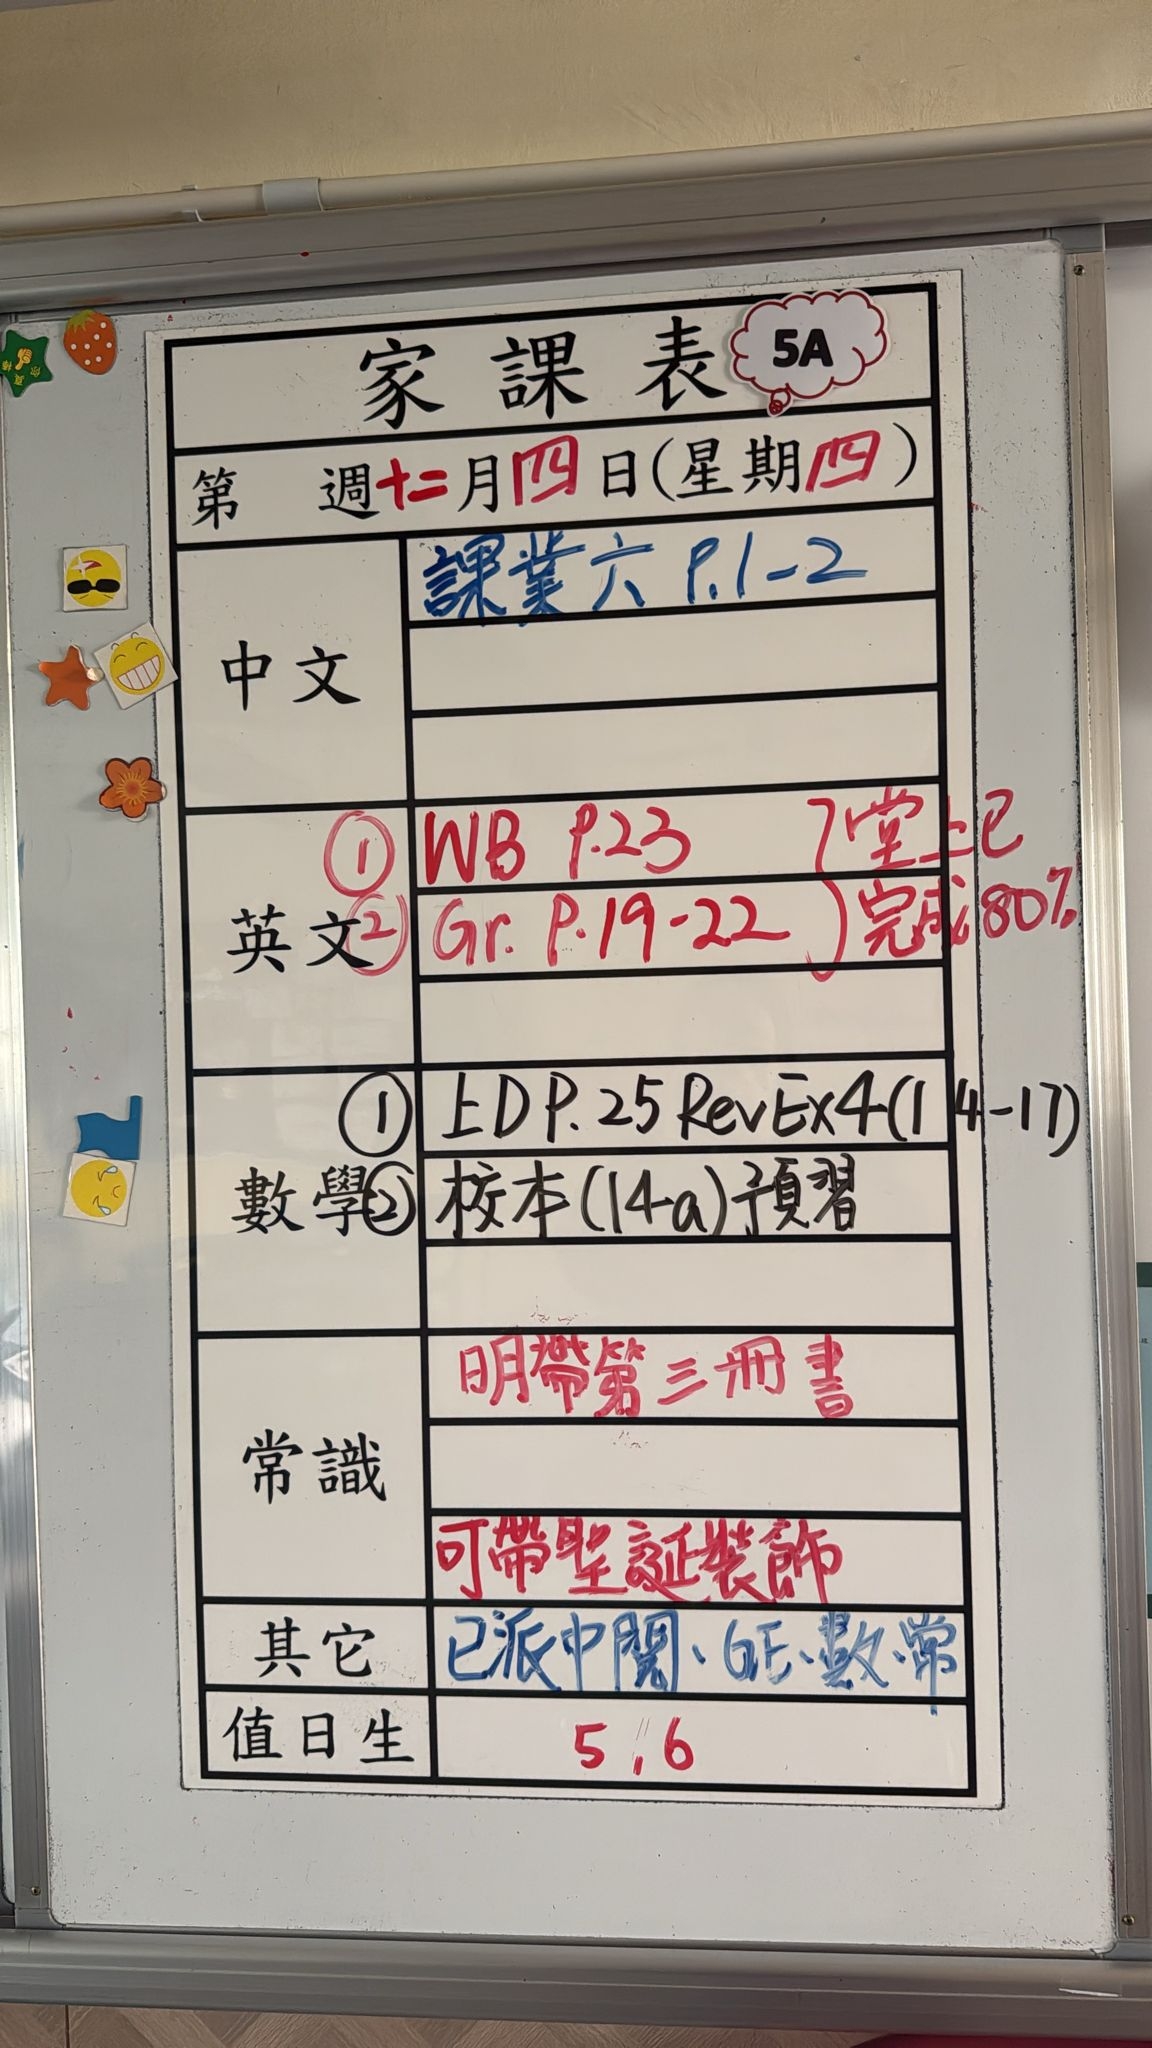 家課表 5A
第 週十二月四日(星期四)
中文
課業六 P.1-2
英文
① WB P.23
② Gr. P.19-22
堂上已
完成80%
數學
① 上D P.25 Rev Ex4(14-17)
② 校本(14a)預習
常識
明帶第三冊書
可帶聖誕裝飾
其它
已派中閱、GE、數、常
值日生
5,6